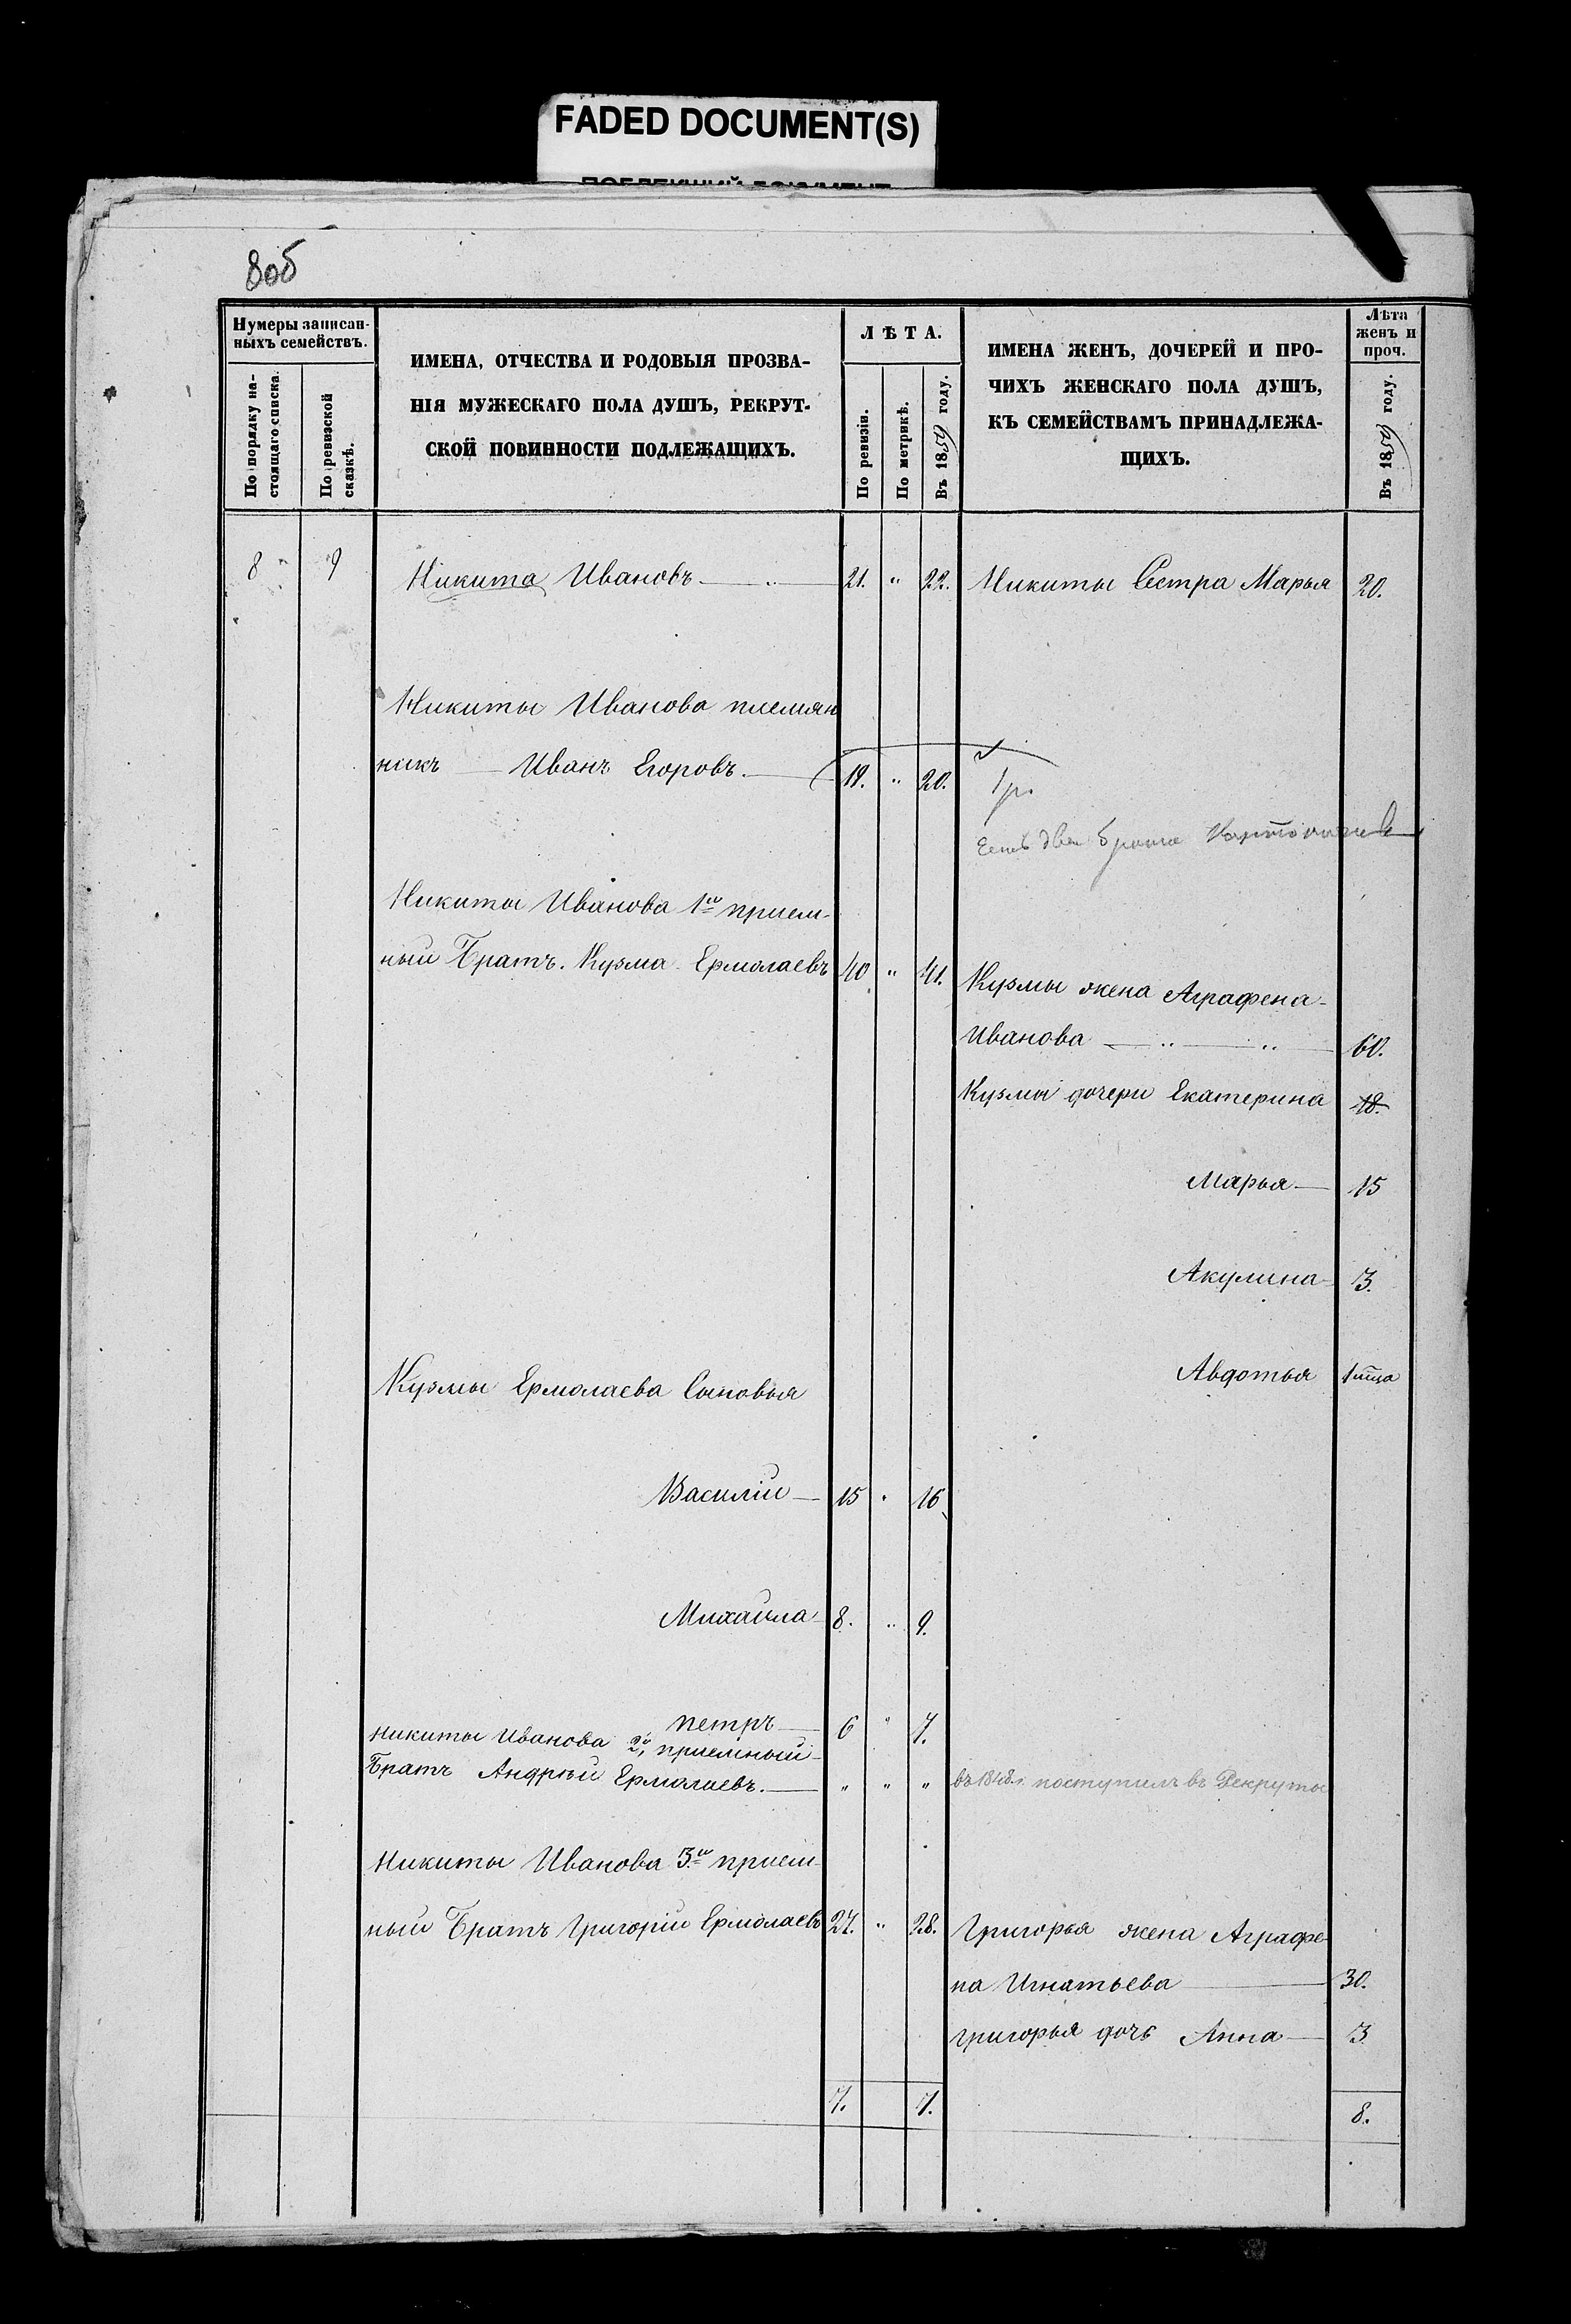 FADED DOCUMENT(S)
8об
Нумеры записан-
ныхъ семействъ.
По порядку на-
стоящаго списка.
По ревизской
сказкѣ.
ИМЕНА, ОТЧЕСТВА И РОДОВЫЯ ПРОЗВА-
НІЯ МУЖЕСКАГО ПОЛА ДУШЪ, РЕКРУТ-
СКОЙ ПОВИННОСТИ ПОДЛЕЖАЩИХЪ.
ЛѢТА.
По ревизіи.
По метрикѣ.
Въ 1859 году.
ИМЕНА ЖЕНЪ, ДОЧЕРЕЙ И ПРО-
ЧИХЪ ЖЕНСКАГО ПОЛА ДУШЪ,
КЪ СЕМЕЙСТВАМЪ ПРИНАДЛЕЖА-
ЩИХЪ.
Лѣта
женъ и
проч.
Въ 1859 году.
8 9 Никита Ивановъ 21. " 22. Никиты Сестра Марья 20.
Никиты Иванова племян
никъ Иванъ Егоровъ. 19. " 20. 1р.
Есть два брата
Никиты Иванова 1й прием-
ный Братъ. Кузма Ермолаевъ 40 " 41.
Кузмы жена Аграфена
Иванова 60.
Кузмы дочери Екатерина 18.
Марья 15
Акулина 3.
Авдотья
Кузмы Ермолаева Сыновья
Василій 15 " 16
Михаила 8. " 9.
петръ 6 " 7.
Никиты Иванова 2й, приемный
Братъ Андрей Ермолаевъ. " " " въ 1848 г. поступилъ въ Рекруты
Никиты Иванова 3й прием-
ный Братъ Григорій Ермолаевъ 27. " 28. Григорья жена Аграфе
на Игнатьева 30.
григорья дочь Анна 3
7. 7. 8.